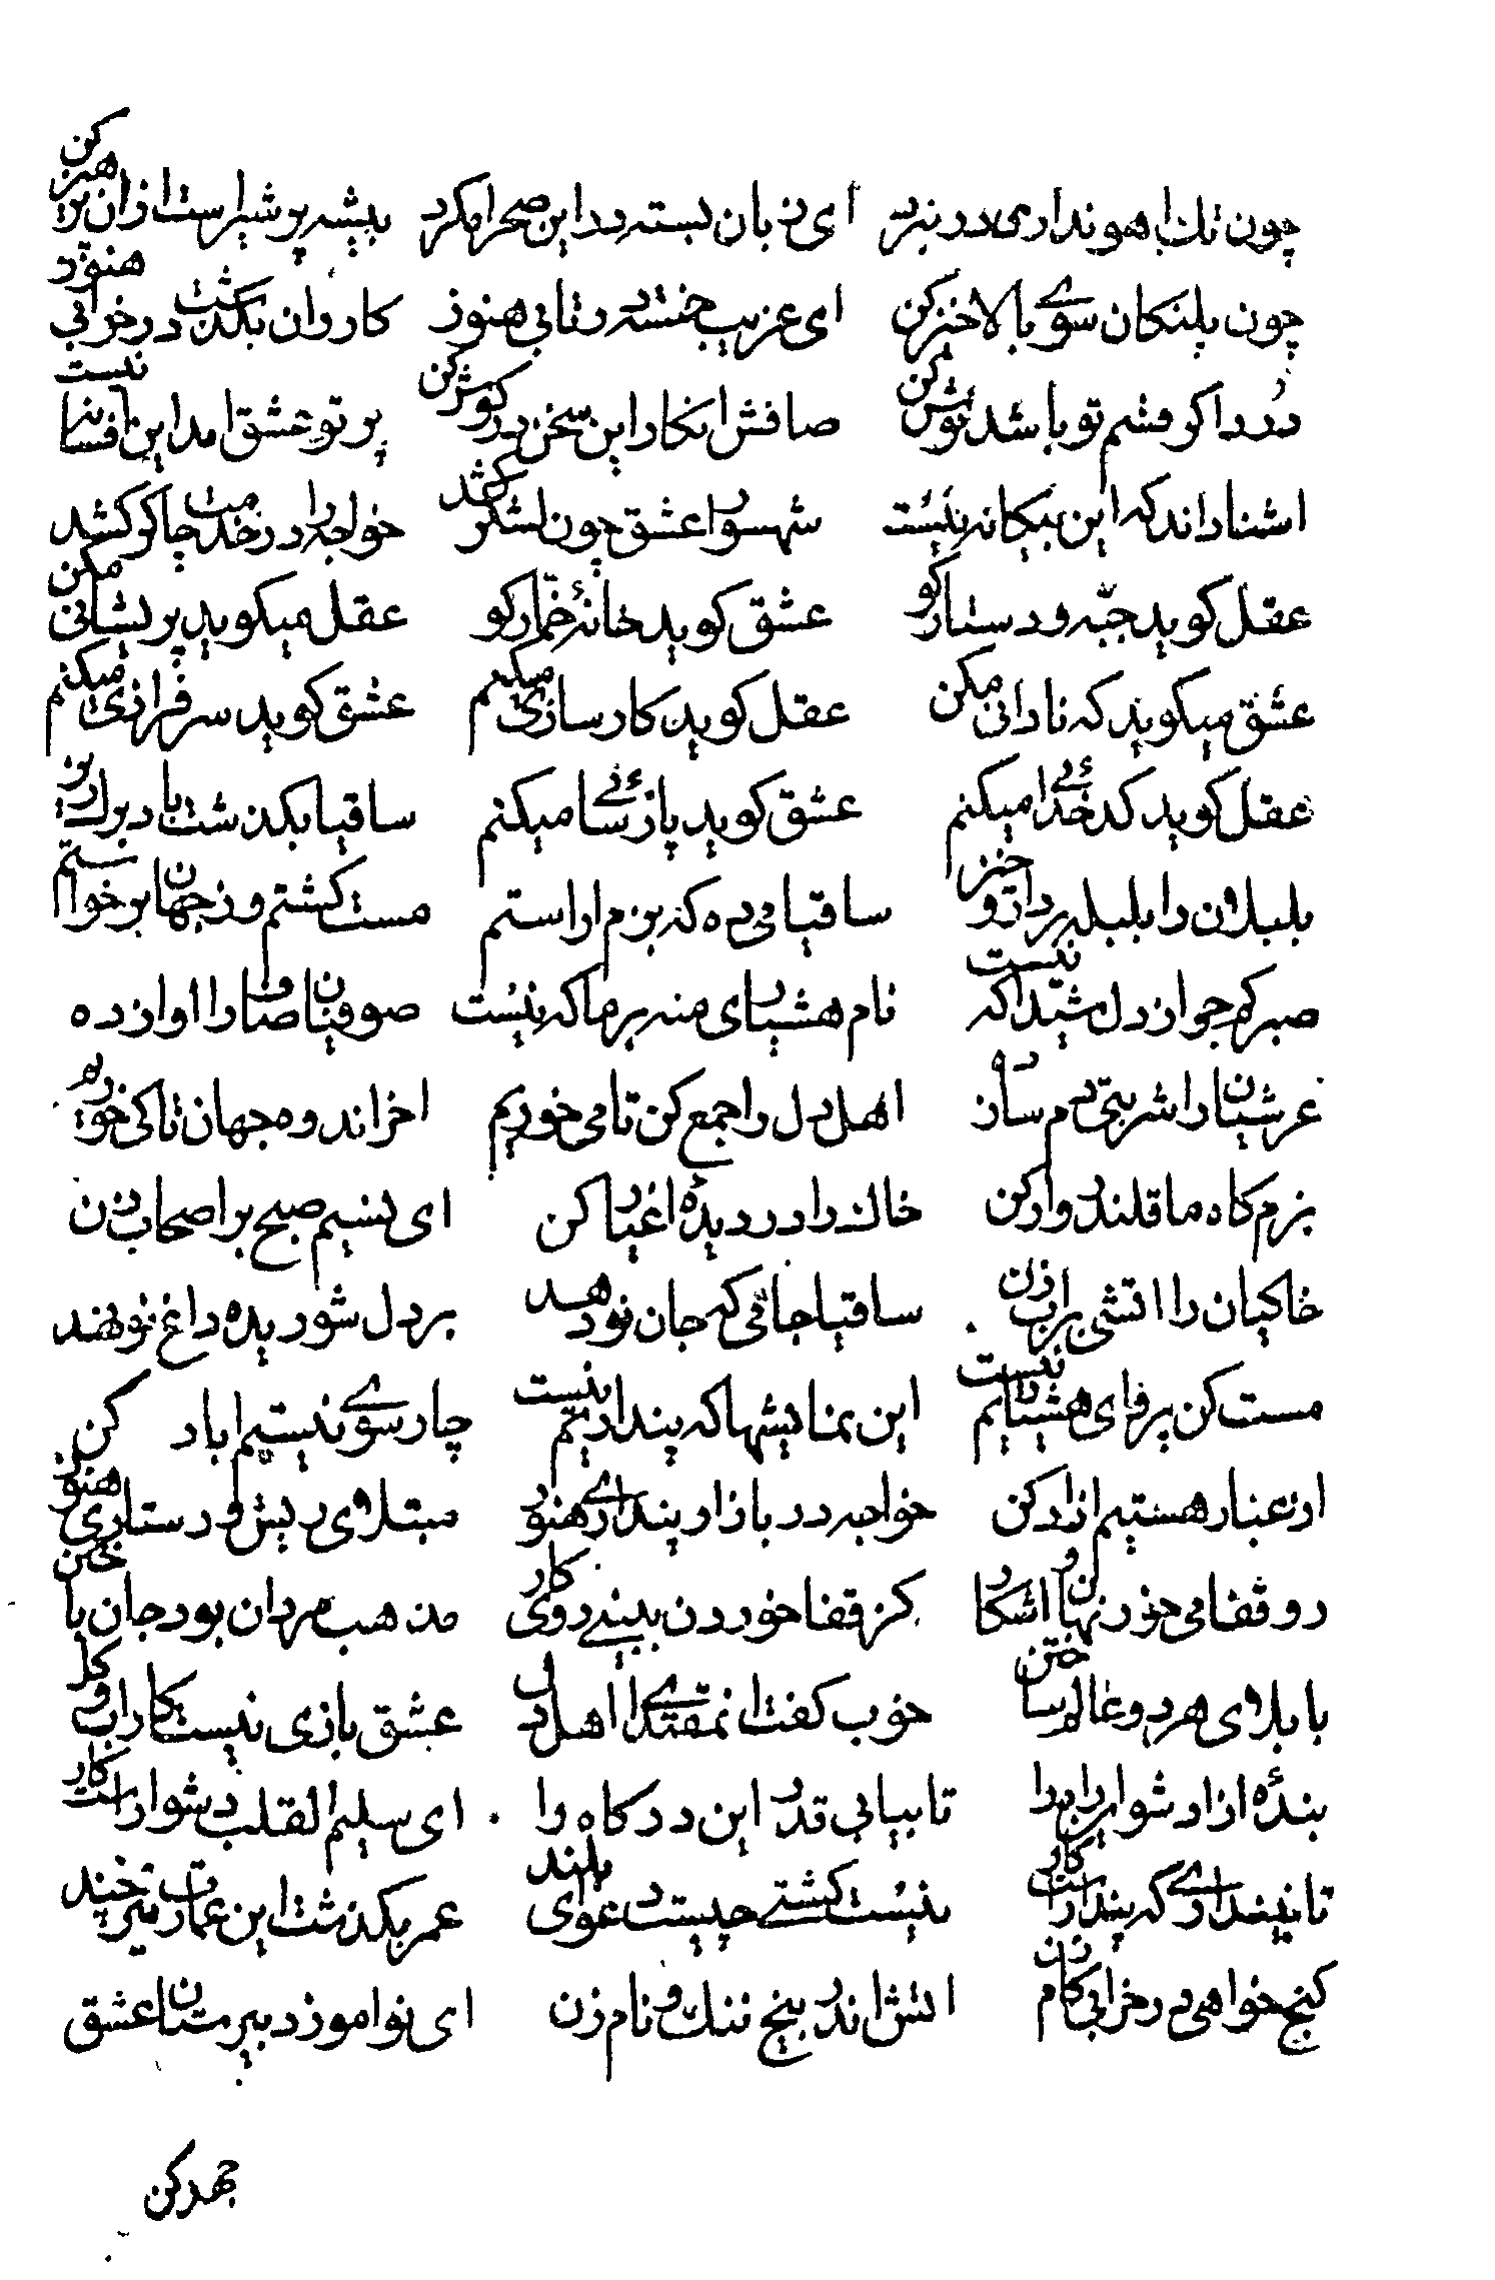 چون تك اهو نداری در نبرد ای زبان بسته در این صحرا مکرد بیشه پر شیر است ازان پرهیز کن
چون پلنکان سوے بالا خیز کن ای غریب خسته در تابی هنوز کاروان بکذشت در خوابی هنوز
درد اکر قسم تو باشد نوش کن صافش انکار این سخن در کوش کن پرتو عشق امد این افسانه نیست
اشنا داند که این بیکانه نیست شهسوار عشق چون لشکر کشد خواجه را در خدمت چاکر کشد
عقل کوید جبّه و دستار کو عشق کوید خانهٔ خمّار کو عقل میکوید پریشانی مکن
عشق میکوید که نادانی مکن عقل کوید کار سازی میکنم عشق کوید سرفرازی میکنم
عقل کوید کدخدائے میکنم عشق کوید پارسائے میکنم ساقیا بکذشت باد برك ریز
بلبلان را بلبله بردار و خیز ساقیا می ده که بزم اراستم مست کشتم وز جهان برخواستم
صبر کم جو از دل شیدا که نیست نام هشیاری منه بر ما که نیست صوفیان صاف را اواز ده
عرشیان را شربتی دم ساز ده اهل دل را جمع کن تا می خوریم اخر اندوه جهان تا کی خوریم
بزم کاه ما قلندر وار کن خاك را در دیدهٔ اغیار کن ای نسیم صبح بر اصحاب زن
خاکیان را اتشی بر اب زن ساقیا جامی که جان نو دهد بر دل شوریده داغ نو نهند
مست کن پر فرای هشیاریم نیست این نمایشها که پنداریم نیست چار سوے نیستیم اباد کن
از غبار هستیم ازاد کن خواجه در بازار پندارے هنوز مبتلای ریش و دستاری هنوز
رو قفا می خور نهان و اشکار کز قفا خوردن ببینے روی کار مذهب مردان بود جان باختن
با بلای هر دو عالم ساختن خوب کفت ان مقتدے اهل دل عشق بازی نیست کار اب و کل
بندهٔ ازاد شو این راه را تا بیابی قدر این درکاه را ای سلیم القلب دشوار است کار
تا نپندارے که پندار است کار نیست کشتے چیست دعوای بلند عمر بکذشت این عمارت تیر چند
کنج خواهی در خرابی کام زن اتش اندر بیخ ننك و نام زن ای نو اموز دبیرستان عشق
جهد کن